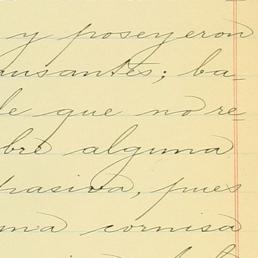 y poseyeron
ausantes; ba-
le que no re=
bre alguna
pasiva, pues
ma cornisa